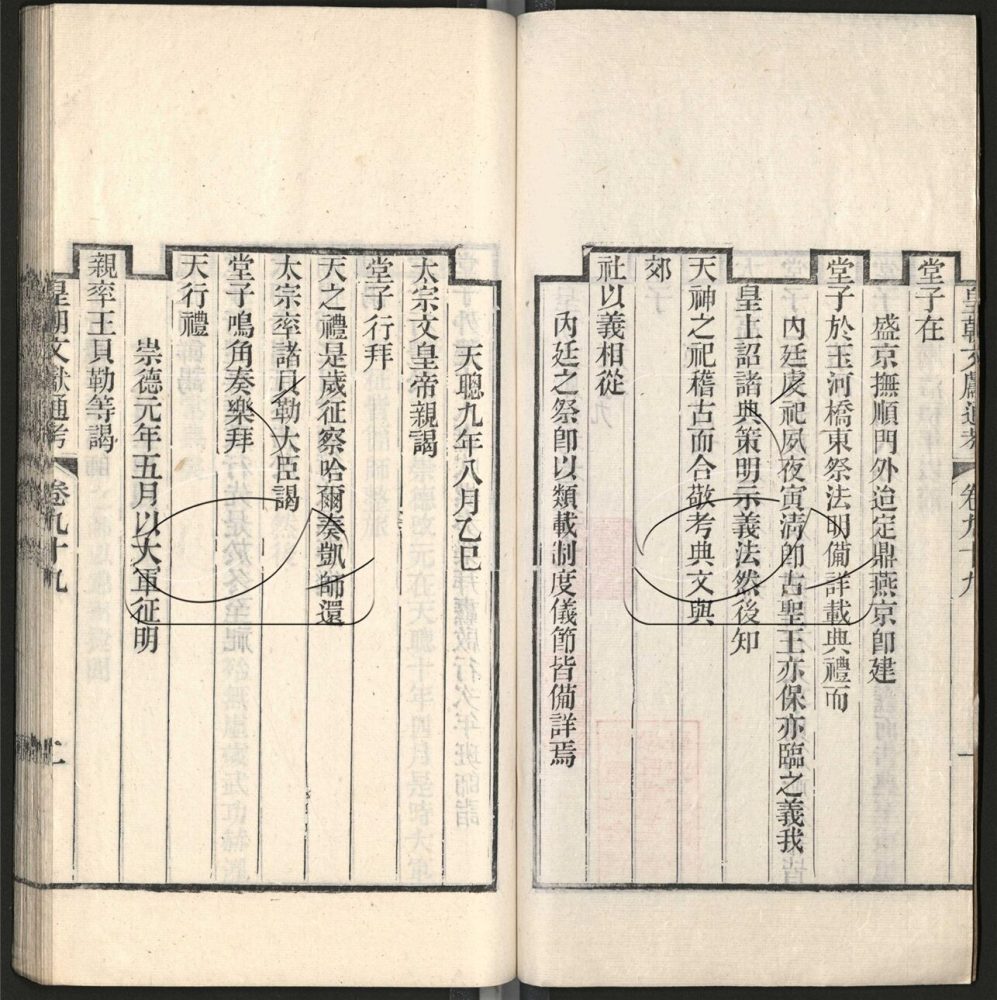 皇朝文獻通考 卷九十九 一
堂子在
盛京撫順門外迨定鼎燕京卽建
堂子於玉河橋東祭法明備詳載典禮而
內廷虔祀夙夜寅淸卽古聖王亦保亦臨之義我
皇上詔諸典策明示義法然後知
天神之祀稽古而合敬考典文與
郊
社以義相從
內廷之祭卽以類載制度儀節皆備詳焉
天聰九年八月乙巳
太宗文皇帝親謁
堂子行拜
天之禮是歲征察哈爾奏凱師還
太宗率諸貝勒大臣謁
堂子鳴角奏樂拜
天行禮
崇德元年五月以大軍征明
親率王貝勒等謁
皇朝文獻通考 卷九十九 二